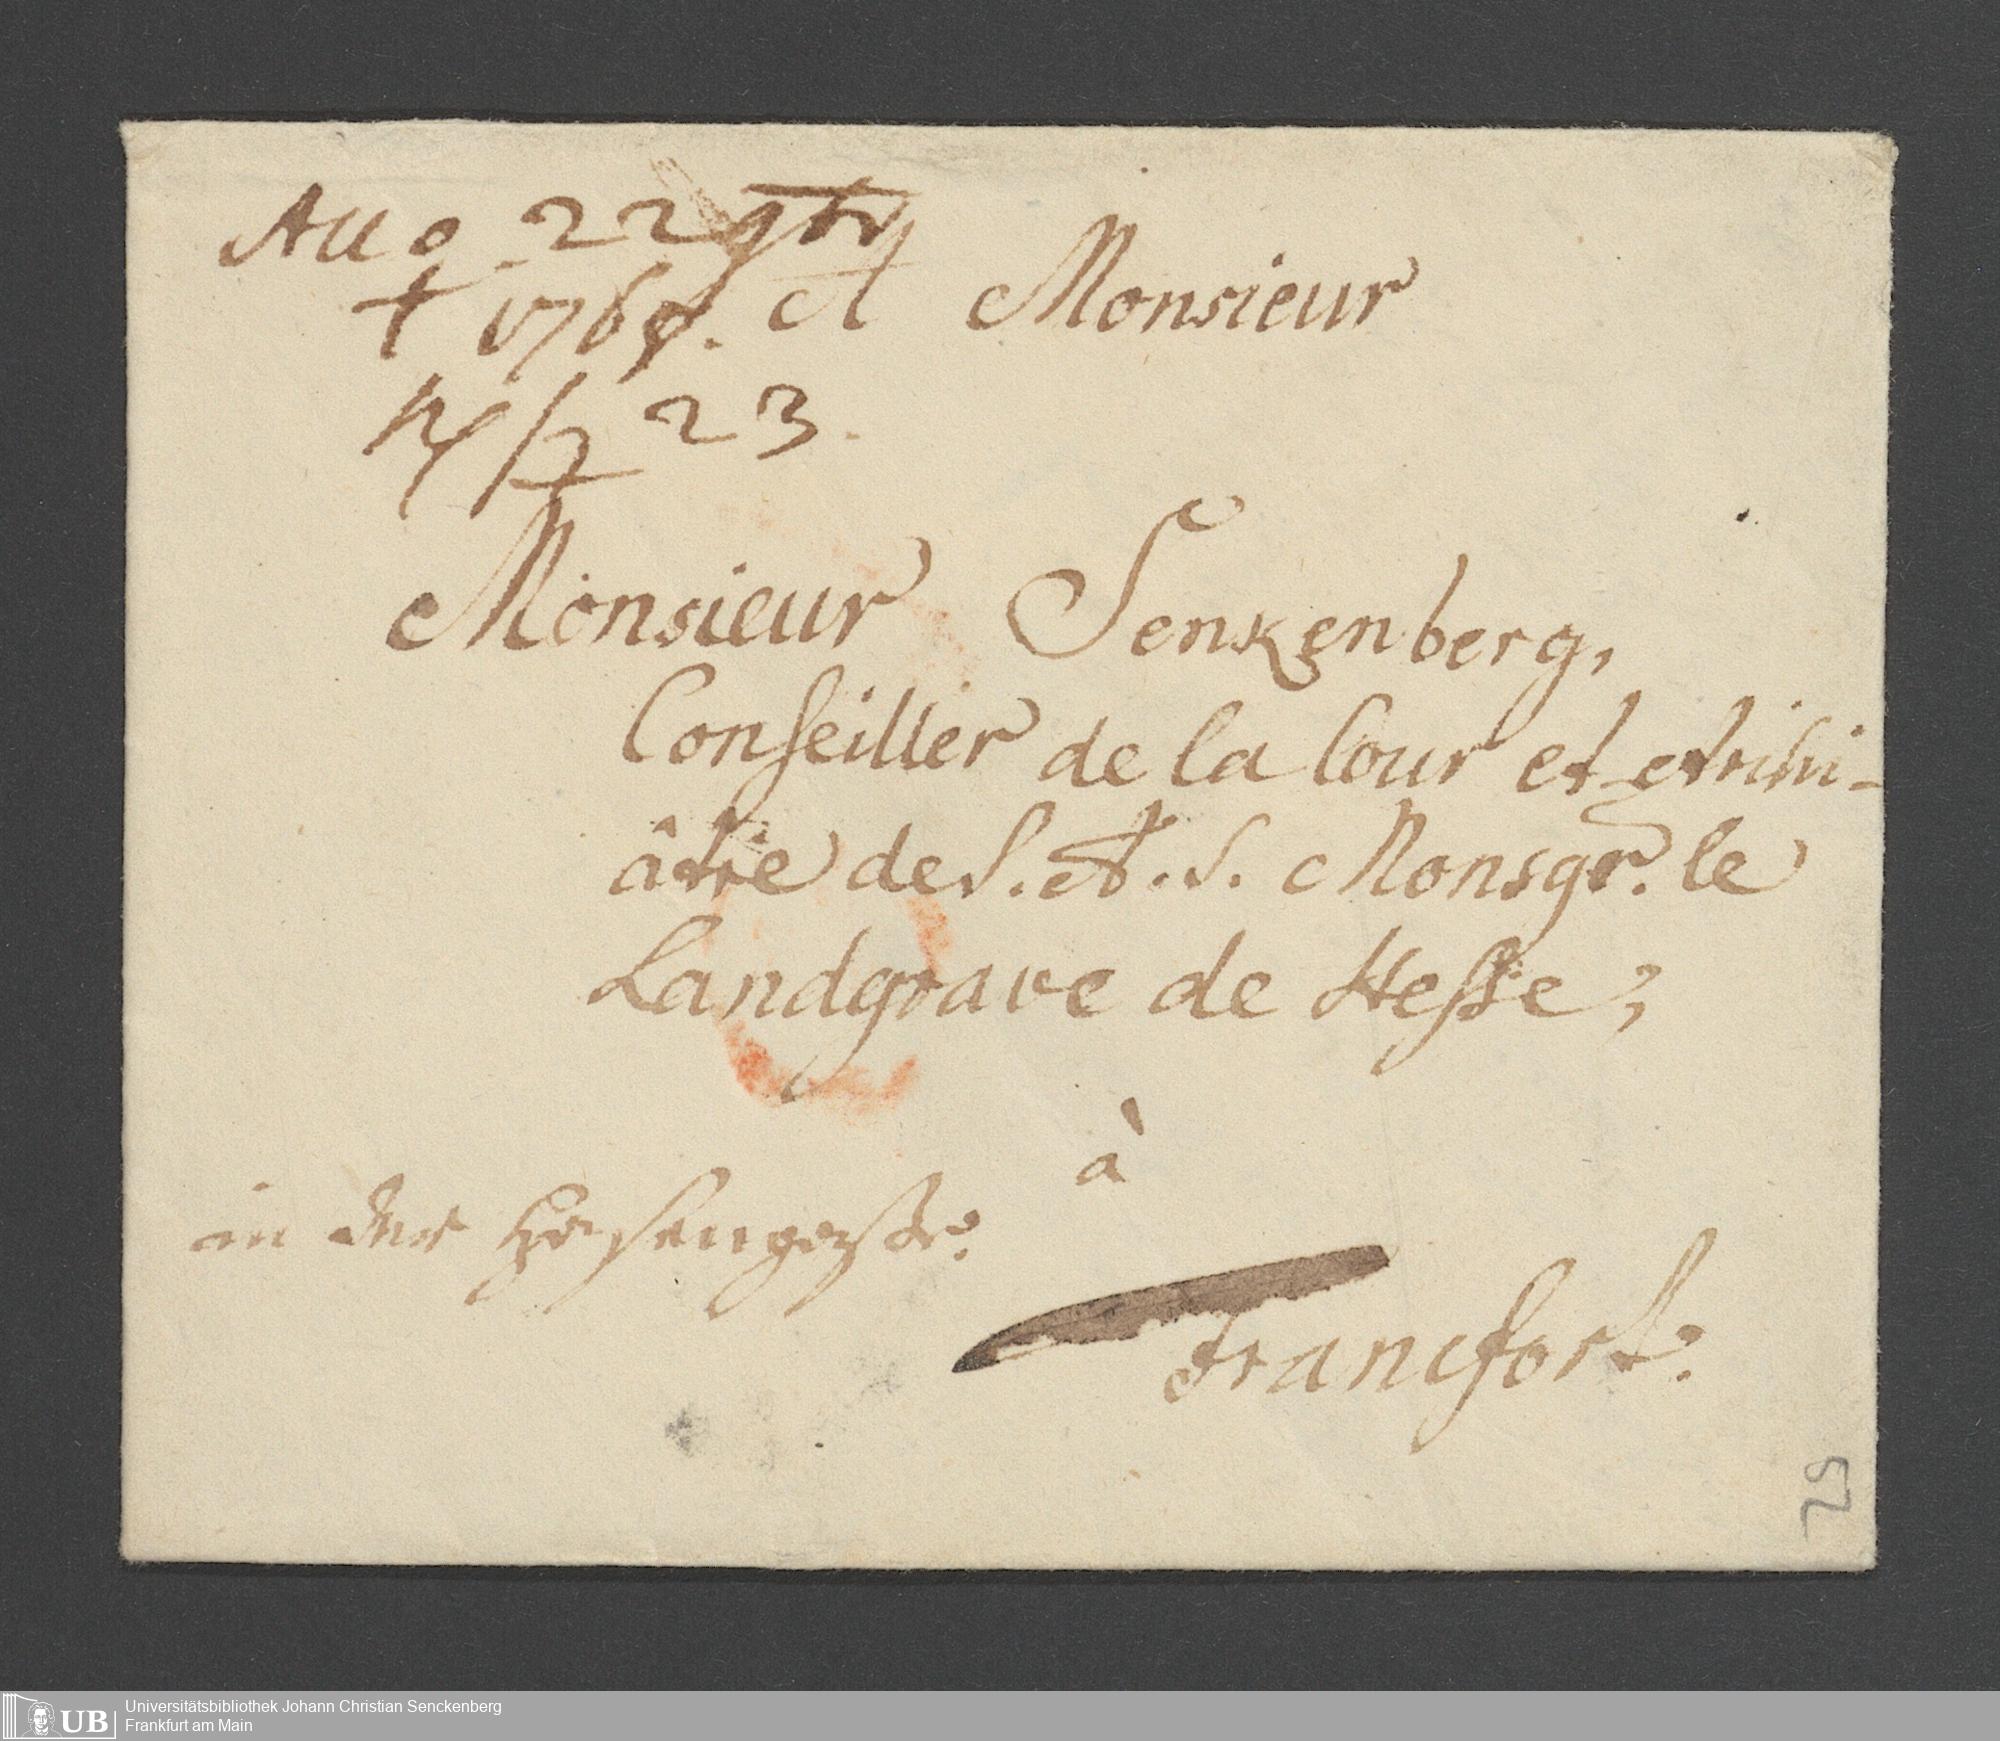 Aug. 22
1768. A Monsieur
23.
Monsieur Senkenberg,
Conseiller de la Cour et Archi-
âtre de S. A. S. Monsgr. le
Landgrave de Hesse,
à
in der Hasengasse.
Francfort.
25
Universitätsbibliothek Johann Christian Senckenberg
Frankfurt am Main
UB